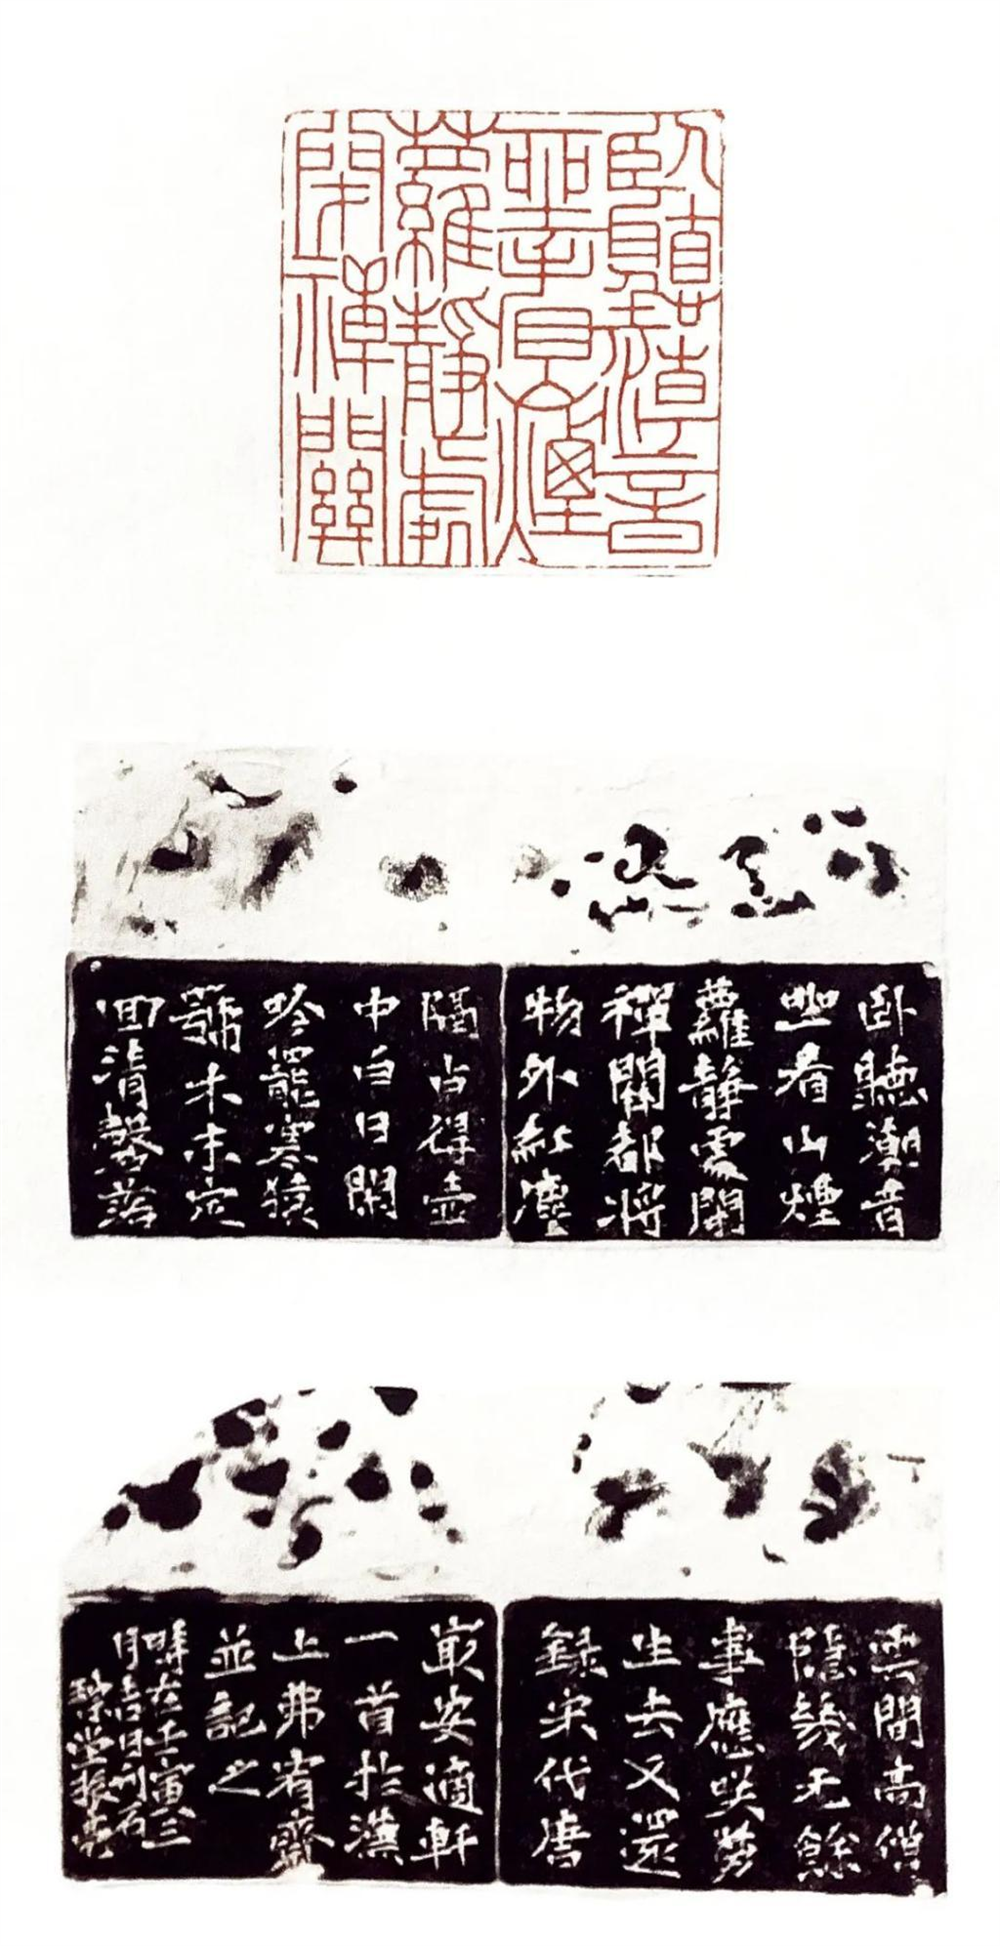 臥聽潮音
坐看山煙
蘿靜處
閉禪關
卧聽潮音
坐看山煙
蘿靜處閉
禪關都將
物外紅塵
隔占得壺
中白日閒
吟罷寒猿
號木末定
回清磬落
雲間高僧
隱幾无餘
事應笑勞
生去又還
録宋代唐
最安適軒
一首於漢
上弗宥齋
並記之
時在壬寅三
月吉日刊石